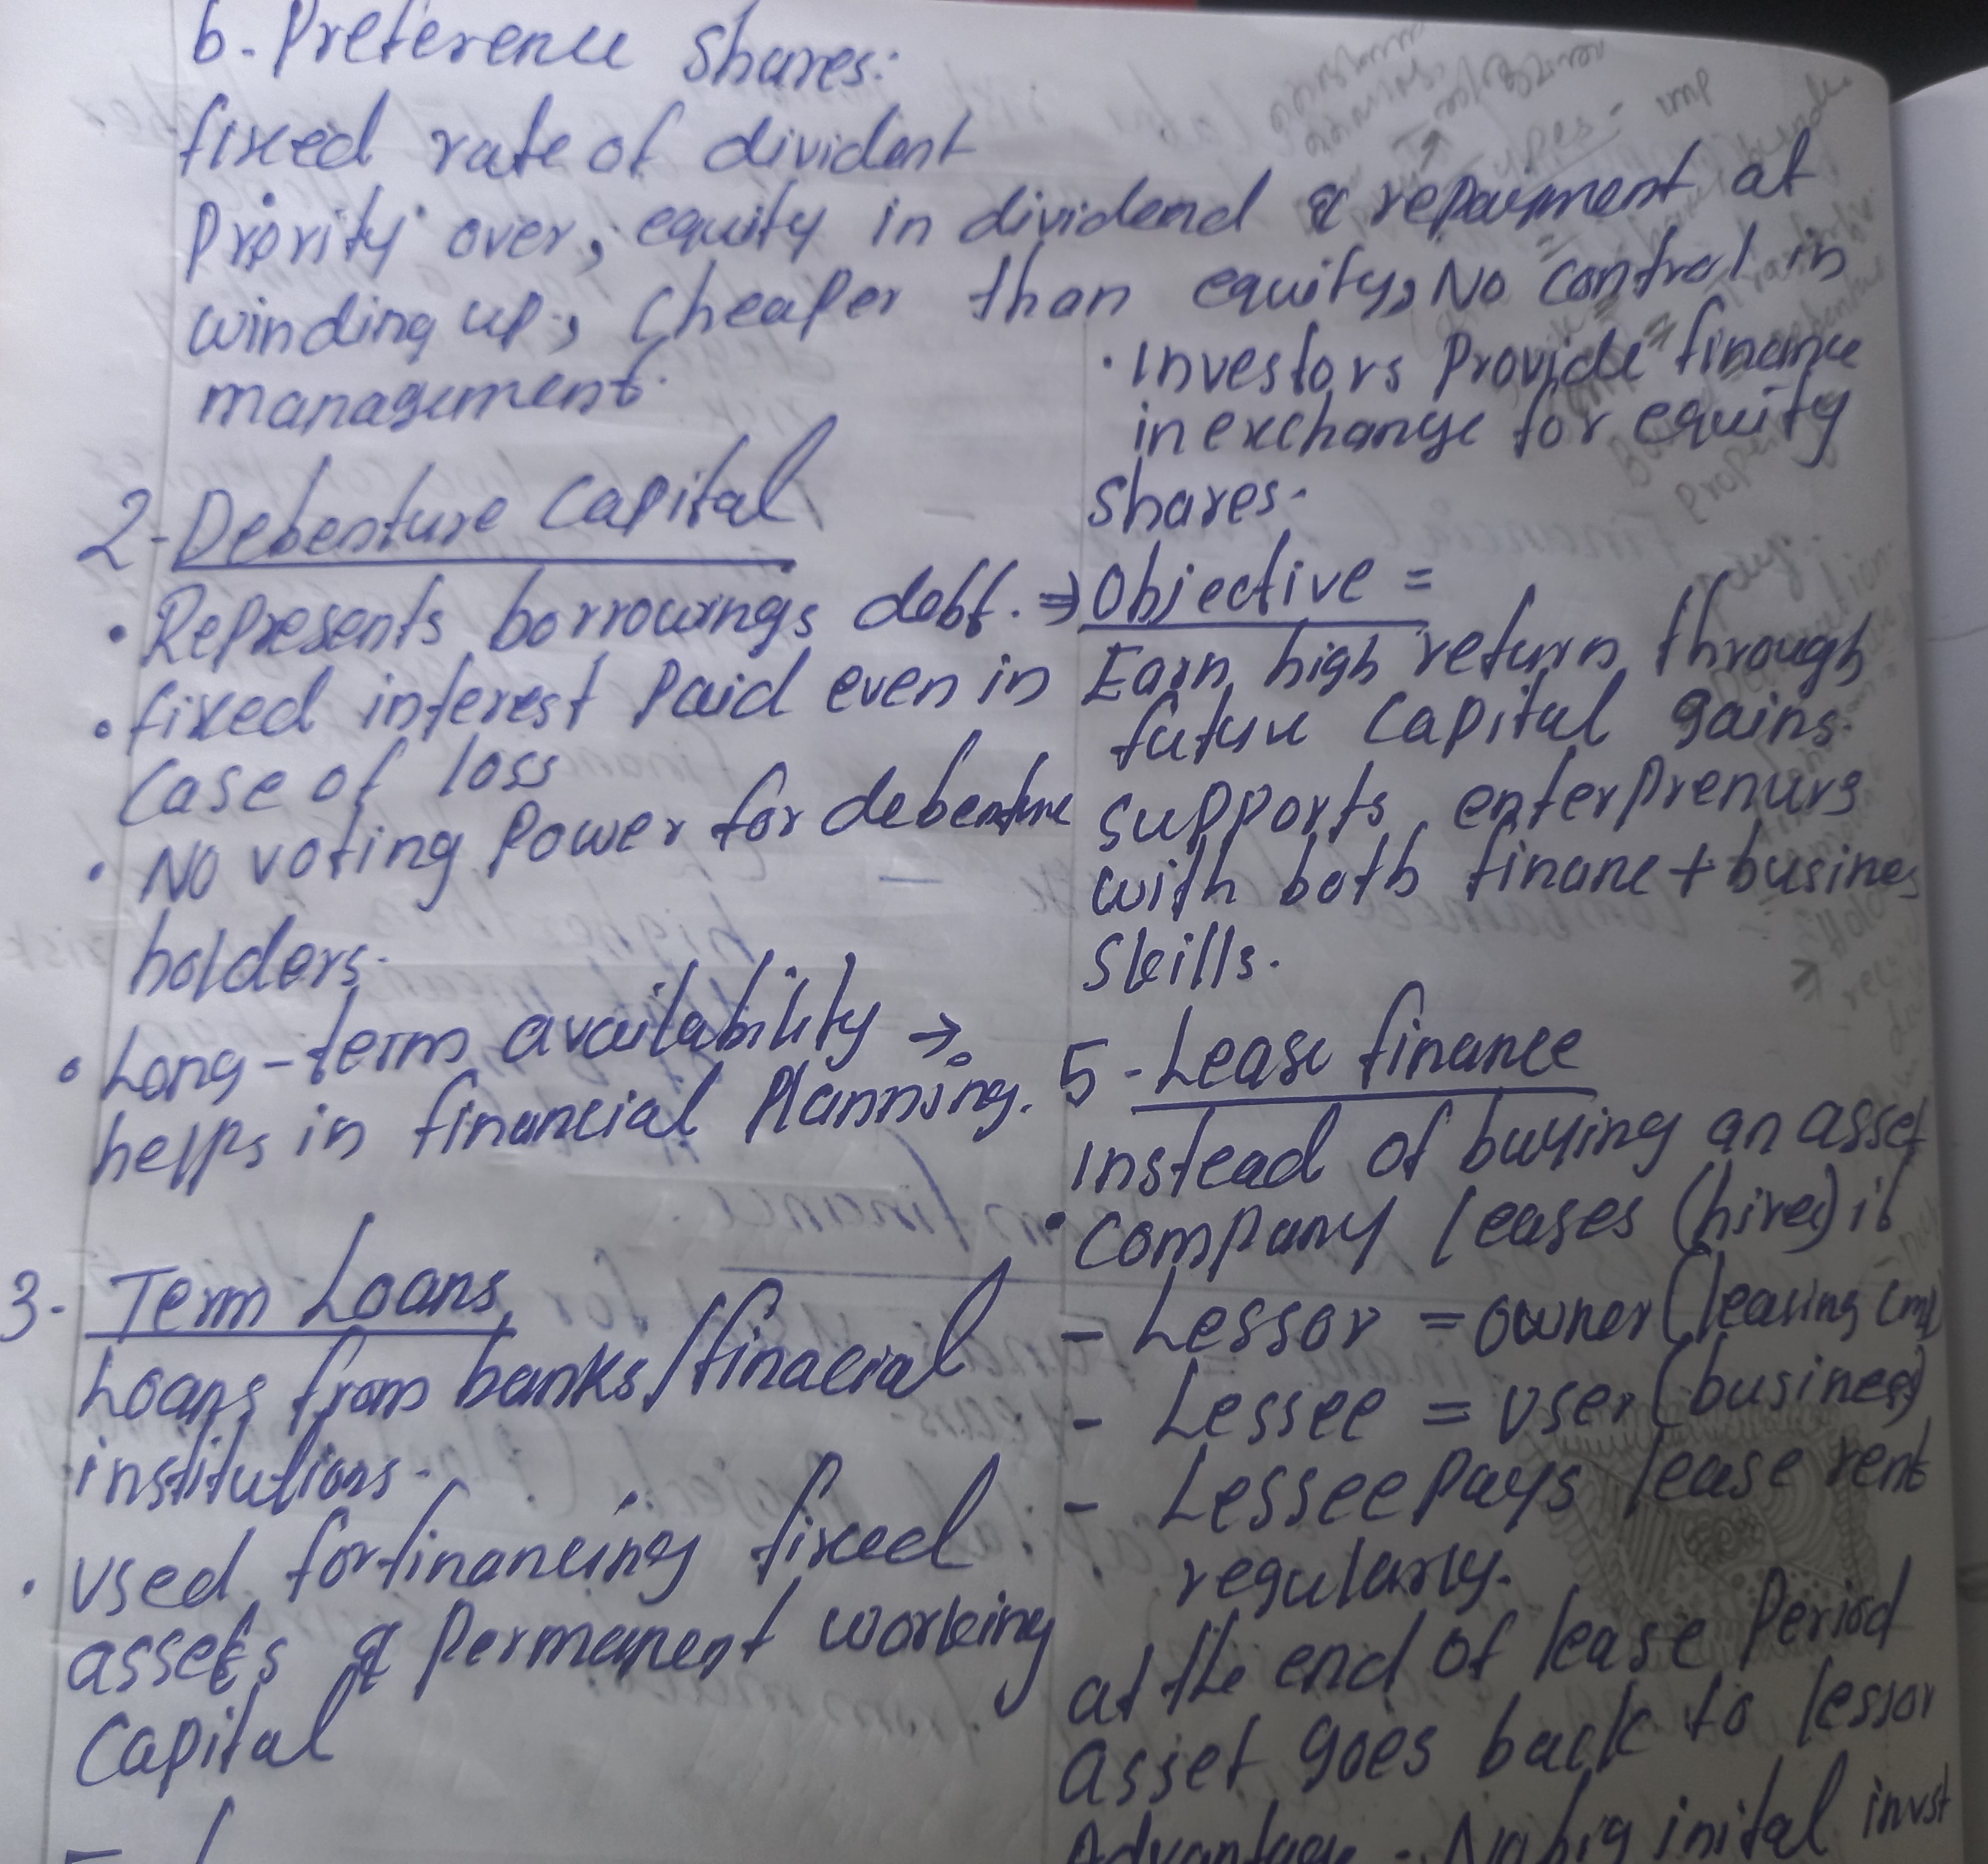 b. Preference shares:
fixed rate of divident
Priority over, equity in dividend & repayment at
winding up, Cheaper than equity, No control in
management.
2- Debenture Capital
• Represents borrowings debt.
• fixed interest Paid even in
case of loss
• NO voting Power for debenture
holders.
• Long-term availability →
helps in financial Planning.
3- Term Loans
Loans from banks/finacial
institutions.
• used for financing fixed
assets & Permanent working
Capital
• Investors Provide finance
in exchange for equity
shares.
⇒ Objective =
Earn high return through
future capital gains.
supports enterprenurs
with both finane + busines
skills.
5 - Lease finance
instead of buying an asset
• company leases (hires) it
- Lessor = owner (leasing cmp)
- Lessee = user (business)
- Lessee Pays lease rent
regularly.
at the end of lease Period
asset goes back to lessor
Advantage - No big inital invst